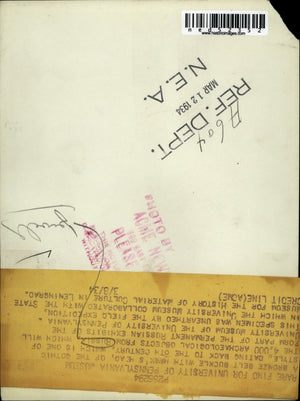 www.historicimages.com
REF. DEPT.
MAR 12 1934
N.E.A.
PHOTO BY
ACME NEW
PLEASE
P252294
RARE FIND FOR UNIVERSITY OF PENNSYLVANIA MUSEUM
A BRONZE BELT BUCKLE WITH "BIRD" HEAD, OF THE GOTHIC
STYLE, DATING BACK TO THE 6TH CENTURY, WHICH IS ONE OF
THE 4,000 ARCHAEOLOGICAL OBJECTS FROM RUSSIA WHICH WILL
FORM PART OF THE PERMANENT EXHIBITS OF THE
UNIVERSITY MUSEUM OF THE UNIVERSITY OF PENNSYLVANIA.
THIS SPECIMEN WAS UNEARTHED BY THE FIELD EXPEDITION,
IN WHICH THE UNIVERSITY MUSEUM COLLABORATED WITH THE STATE
MUSEUM FOR THE HISTORY OF MATERIAL CULTURE IN LENINGRAD.
CREDIT LINE (ACME) 3/8/34